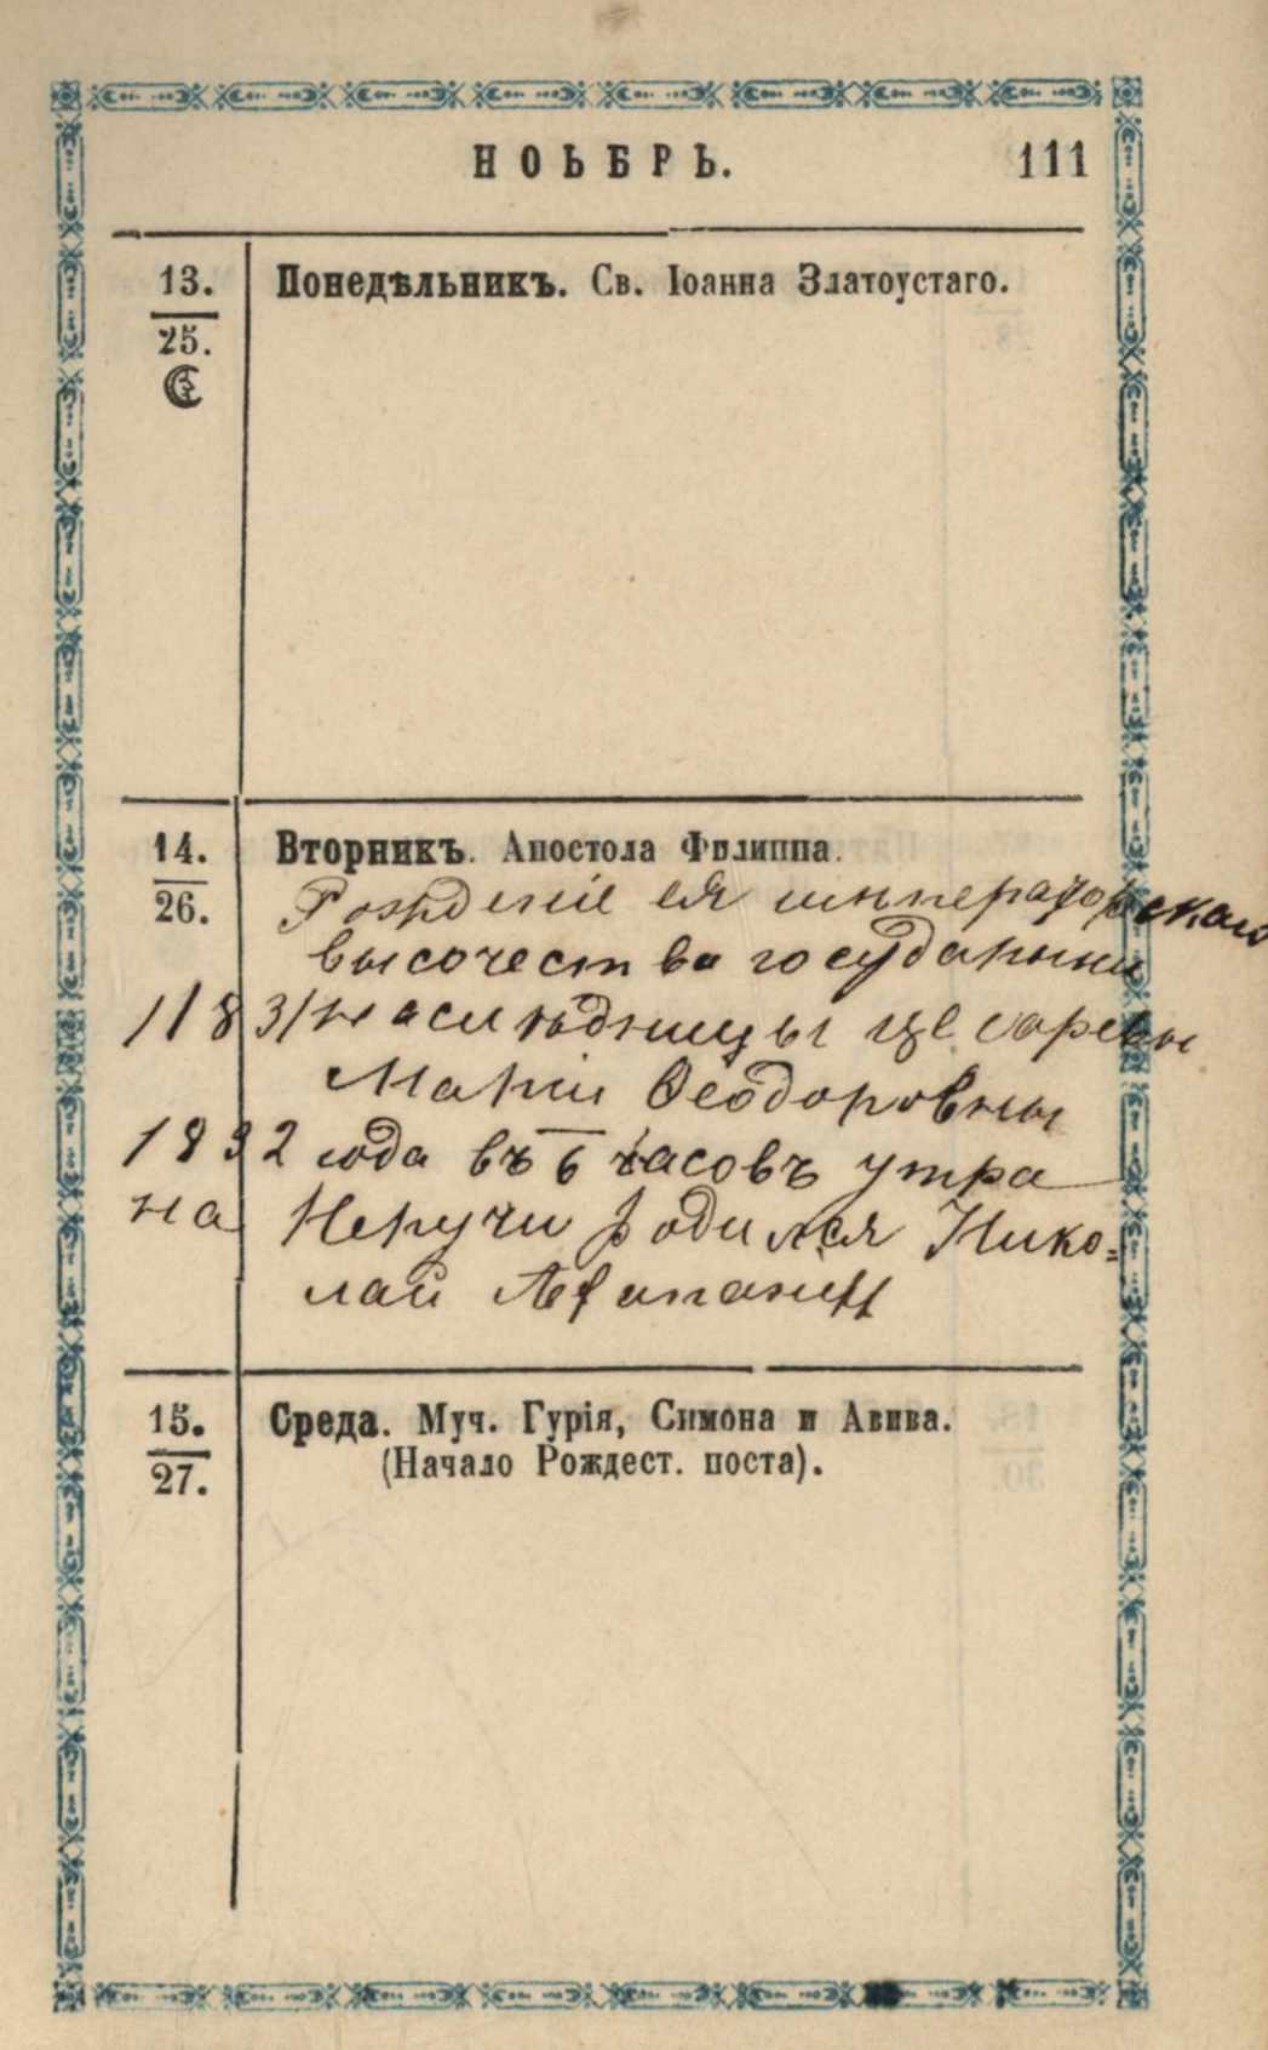 НОЬБРЬ. 111
13. Понедѣльникъ. Св. Іоанна Златоустаго.
25.
14. Вторникъ. Апостола Филиппа.
26. Рожденіе ея императорскаго
высочества государыни
1183/наслѣдницы цесаревны
Маріи Ѳеодоровны
1892 года въ 6 часовъ утра
на Неручи родился Нико=
лай
15. Среда. Муч. Гурія, Симона и Авива.
27. (Начало Рождест. поста).